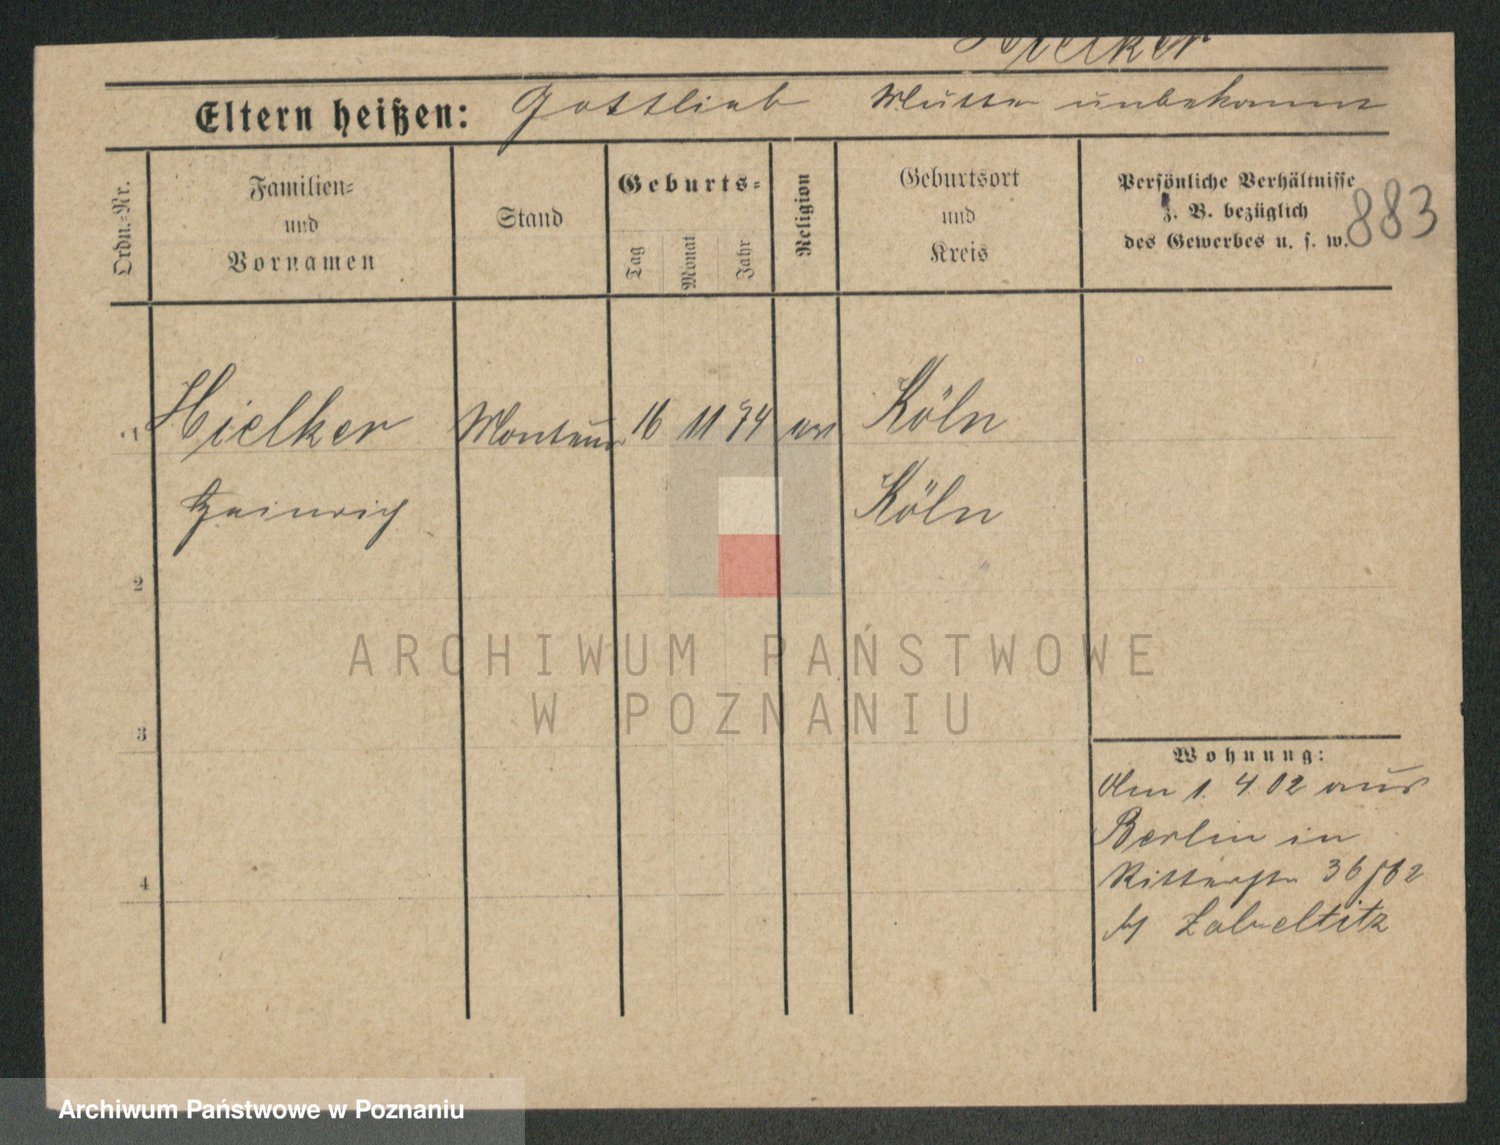 Hielker
Eltern heißen: Gottlieb Mutter unbekannt
Ordn.-Nr.
Familien-
und
Vornamen
Stand
Geburts-
Tag
Monat
Jahr
Religion
Geburtsort
und
Kreis
Persönliche Verhältnisse
z. B. bezüglich
des Gewerbes u. s. w.
883
1 Hielker Monteur 16 11 74 ev Köln
Heinrich Köln
2
3
4
Wohnung:
Am 1. 4. 02 aus
Berlin in
Ritterstr 36
b/ Zabeltitz
ARCHIWUM PAŃSTWOWE
W POZNANIU
Archiwum Państwowe w Poznaniu